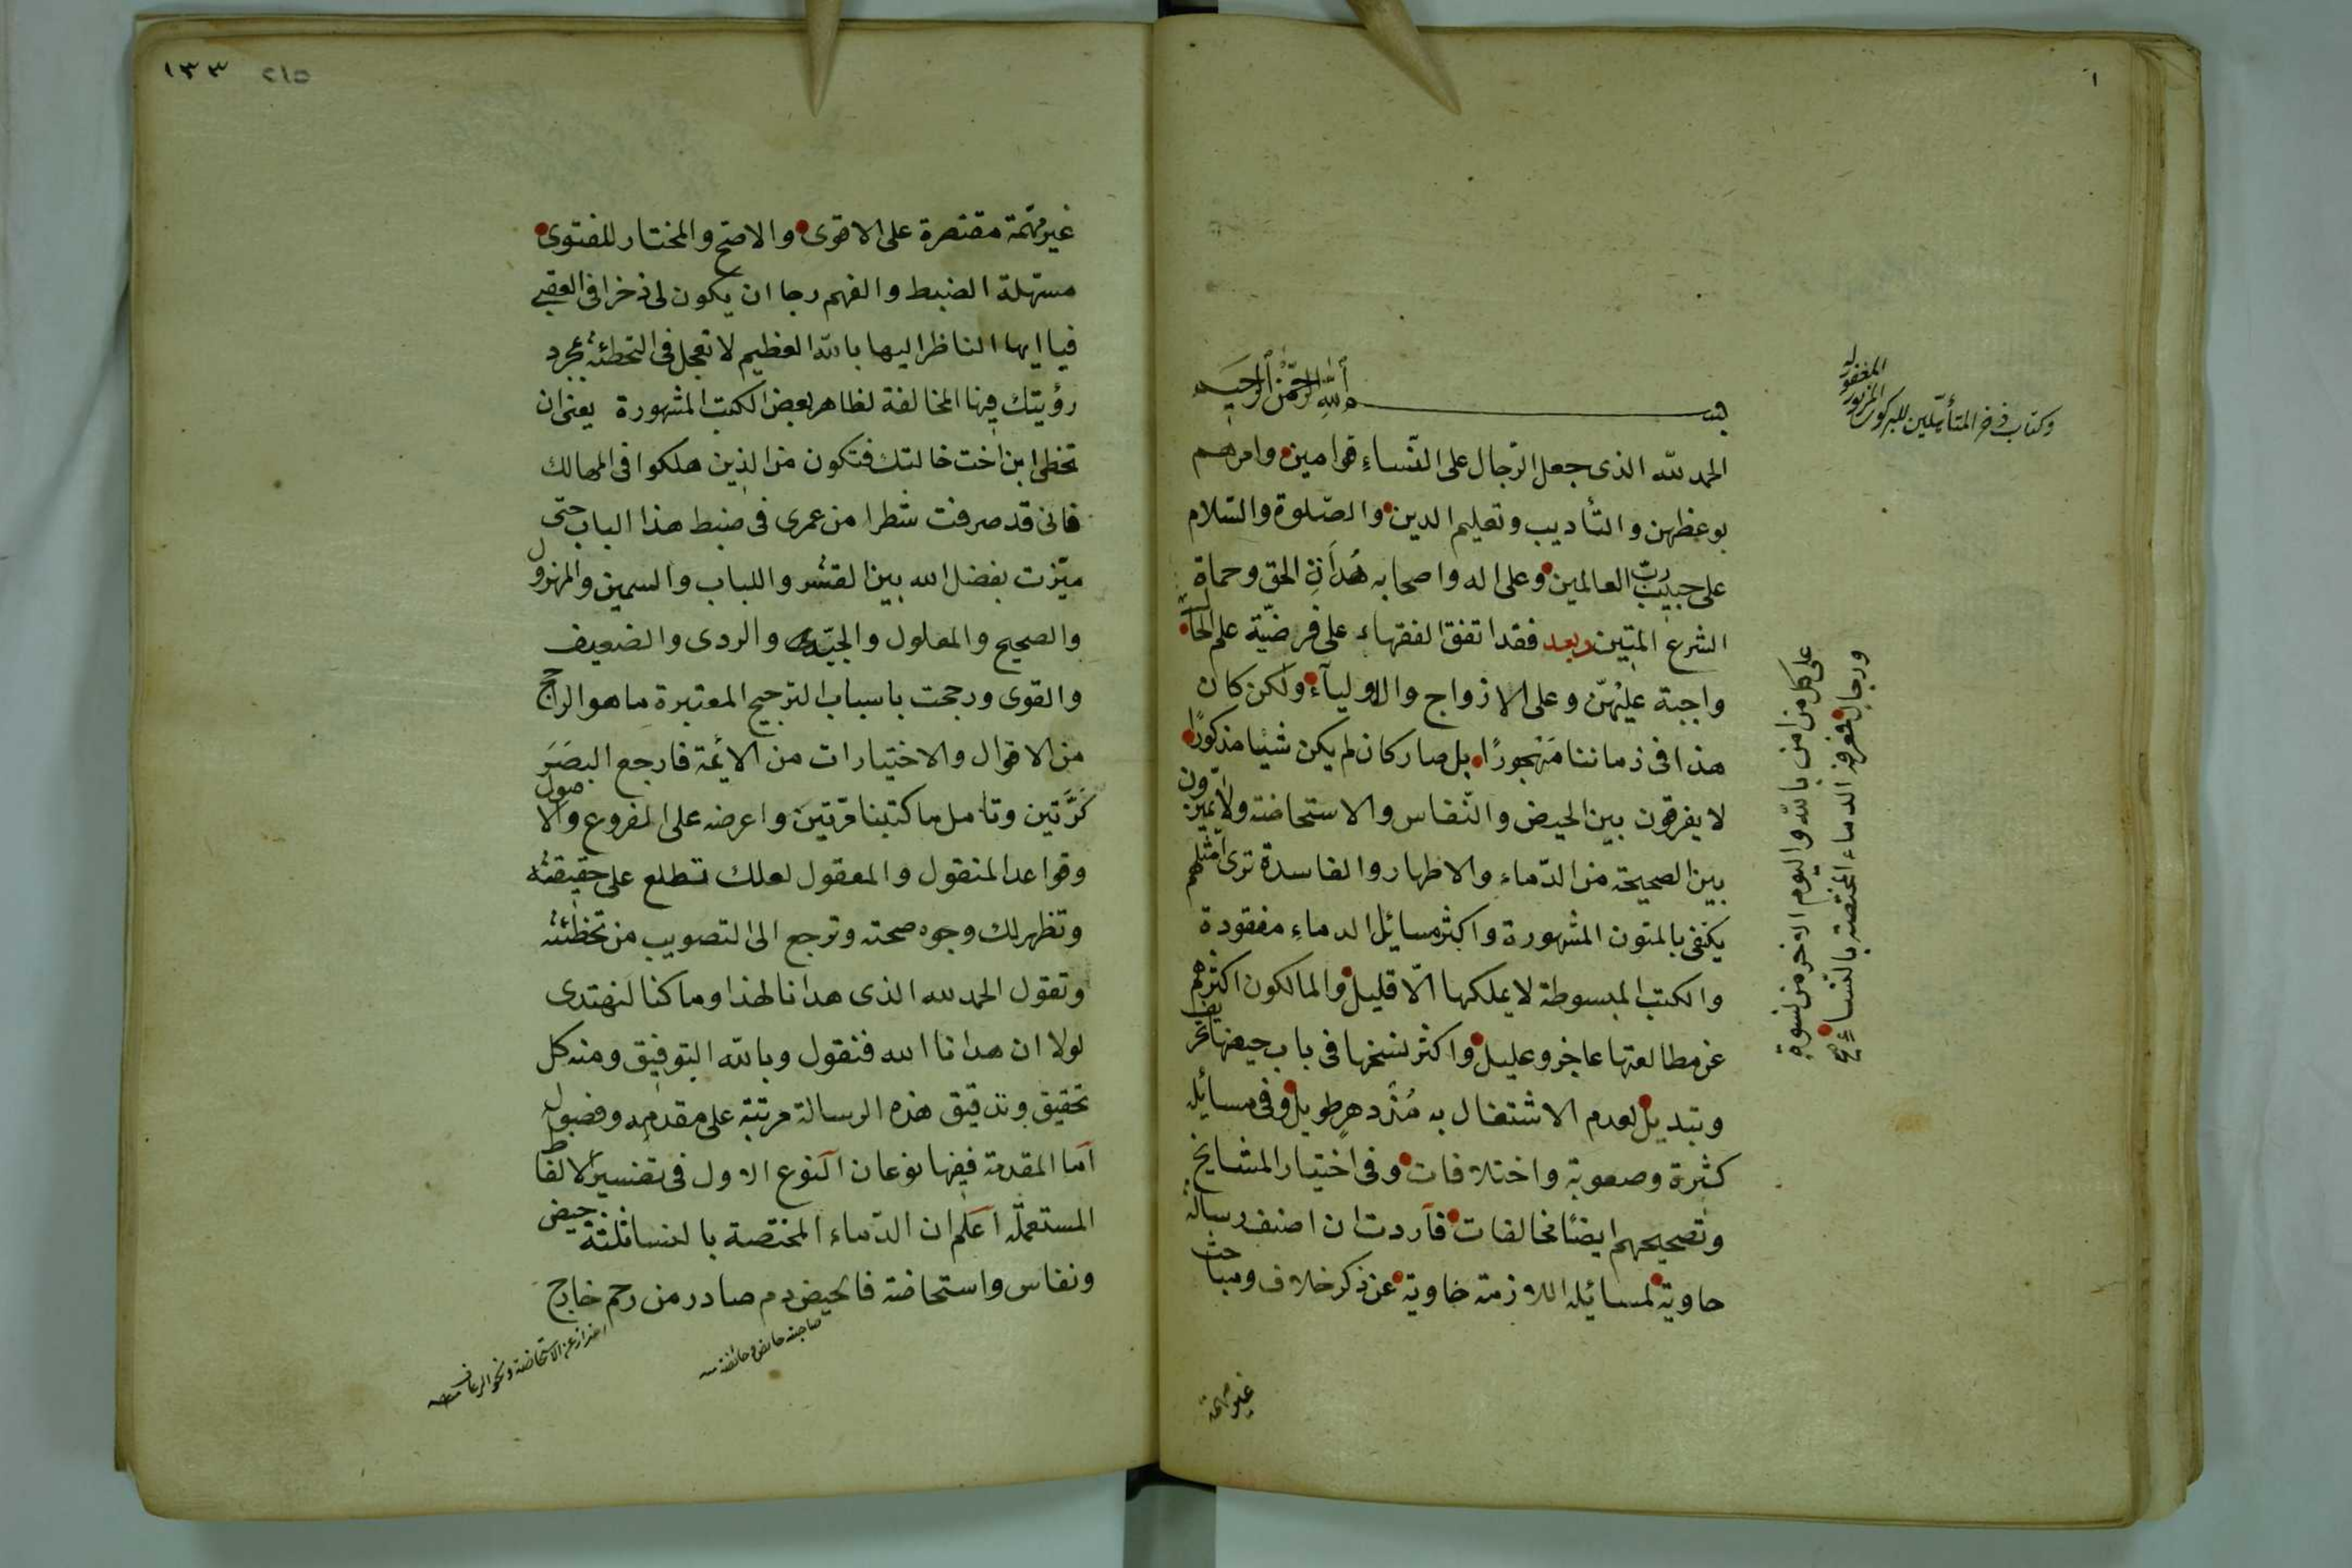 ١
وكتاب ذخر المتأهلين للبركوى المزبور المغفور له
بسم الله الرحمن الرحيم
الحمد لله الذى جعل الرجال على النساء قوامين وامرهم
بوعظهن والتأديب وتعليم الدين والصلوة والسلام
على حبيب رب العالمين وعلى اله واصحابه هُداةِ الحق وحماة
الشرع المتين وبعد فقد اتفق الفقهاء على فرضية علم الحال
على كل من امن بالله واليوم الاخر من نسوة
ورجال فمعرفة الدماء المختصة بالنساء صح
واجبة عليهن وعلى الازواج والاولياء ولكن كان
هذا فى زماننا مَهْجورًا بل صار كان لم يكن شيئا مذكورًا
لا يفرقون بين الحيض والنفاس والاستحاضة ولا يميزون
بين الصحيحة من الدماء والاطهار والفاسدة ترى امثلهم
يكتفى بالمتون المشهورة واكثر مسائل الدماء مفقودة
والكتب المبسوطة لا يملكها الا قليل والمالكون اكثرهم
عن مطالعتها عاجز وعليل واكثر نسخها فى باب حيضها تحريف
وتبديل لعدم الاشتغال به مُذ دهرٍ طويل وفى مسائله
كثرة وصعوبة واختلافات وفى اختيار المشايخ
وتصحيحهم ايضًا مخالفات فاردت ان اصنف رسالة
حاوية لمسائله اللازمة خاوية عن ذكر خلاف ومباحث
غير مهمة
١٣٣ ٢١٥
غير مهمة مقتصرة على الاقوى والاصح والمختار للفتوى
مسهلة الضبط والفهم رجا ان يكون لى ذخرا فى العقبى
فيا ايها الناظر اليها بالله العظيم لا تعجل فى التخطئة بمجرد
رؤيتك فيها المخالفة لظاهر بعض الكتب المشهورة يعنى ان
تخطئ ابن اخت خالتك فتكون من الذين هلكوا فى المهالك
فانى قد صرفت شطرا من عمرى فى ضبط هذا الباب حتى
ميّزت بفضل الله بين القشر واللباب والسمين والمهزول
والصحيح والمعلول والجيّد والردى والضعيف
والقوى ورجحت باسباب الترجيح المعتبرة ما هو الراجح
من الاقوال والاختيارات من الائمة فارجع البصَرَ
كَرَّتين وتامل ما كتبنا مرتين واعرضه على الفروع والاصول
وقواعد المنقول والمعقول لعلك تطلع على حقيقته
وتظهر لك وجوه صحته وترجع الى التصويب من تخطئته
وتقول الحمد لله الذى هدانا لهذا وما كنا لنهتدى
لولا ان هدانا الله فنقول وبالله التوفيق ومنه كل
تحقيق وتدقيق هذه الرسالة مرتبة على مقدمه وفصول
اما المقدمة ففيها نوعان النوع الاول فى تفسير الالفاظ
المستعمله اعلم ان الدماء المختصة بالنسا ثلثة حيض
ونفاس واستحاضة فالحيض دم صادر من رحم خارج
صاحبته حائض وحائضة منه
احتراز عن الاستحاضة ونحو الرعاف منه